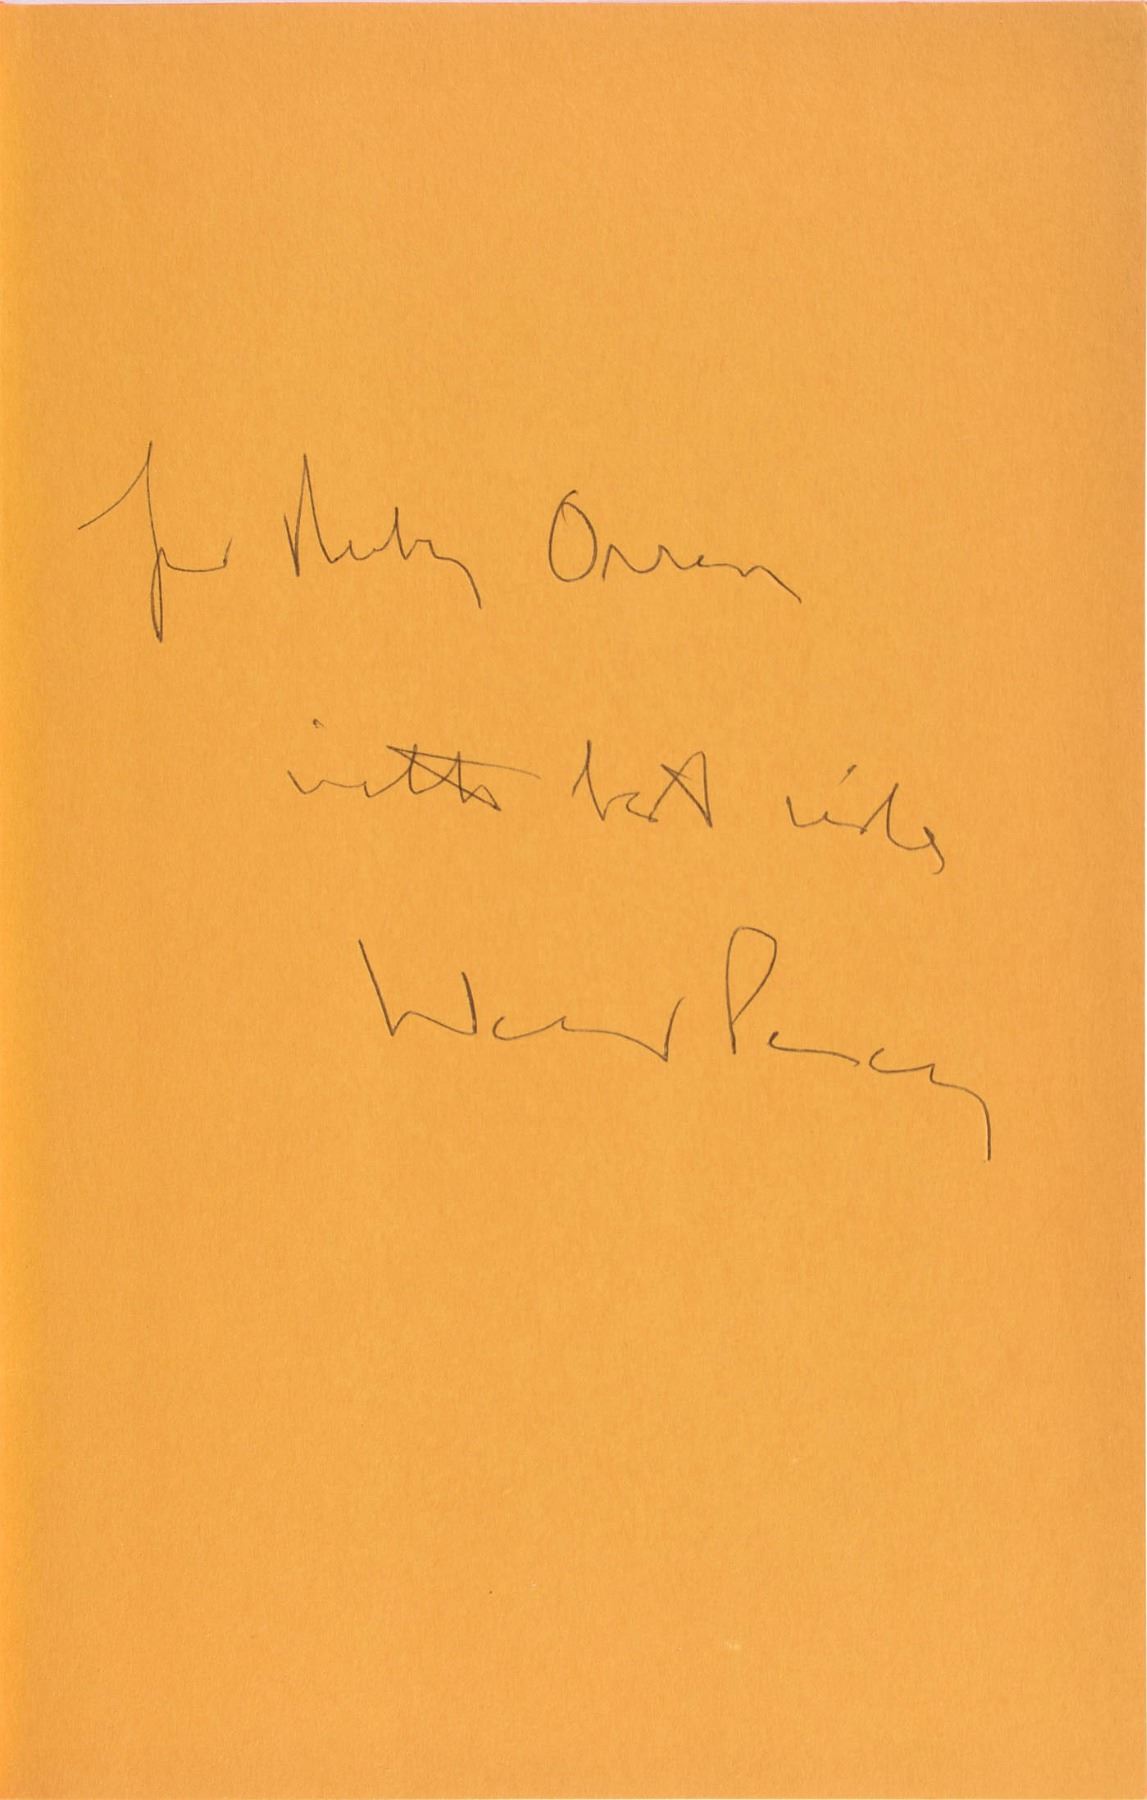 for Ruby Orren
with best wishes
Walker Percy